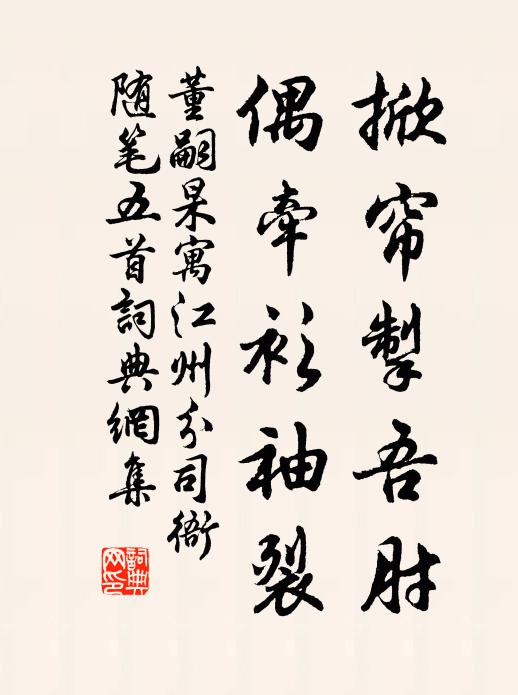 掀帘掣吾肘
偶牽衫袖裂
董嗣杲寓江州分司衙
随笔五首詞典網集
詞典网印